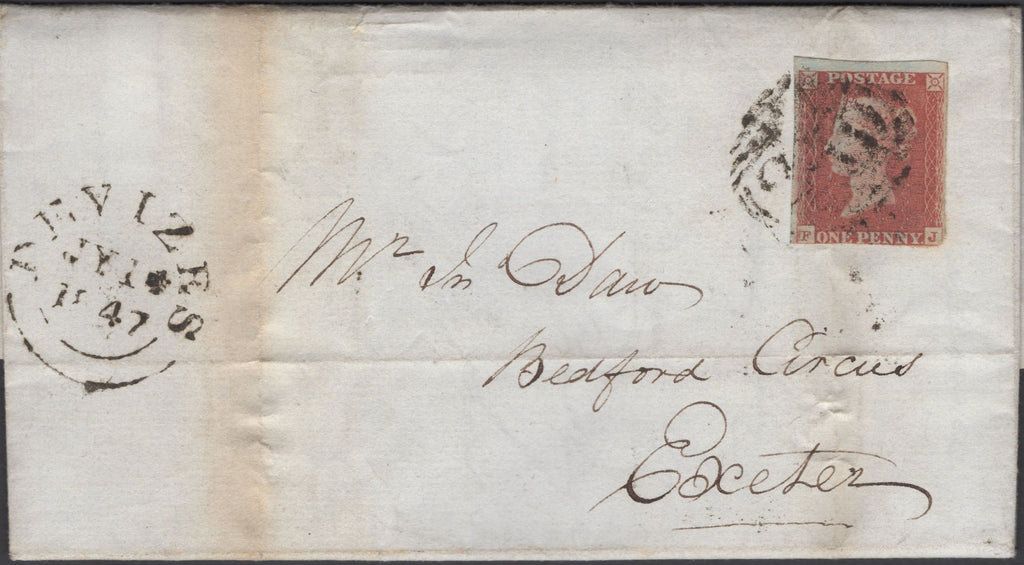 POSTAGE
F ONE PENNY J
DEVIZES
JY 14
1847
Mr Jn Daw
Bedford Circus
Exeter